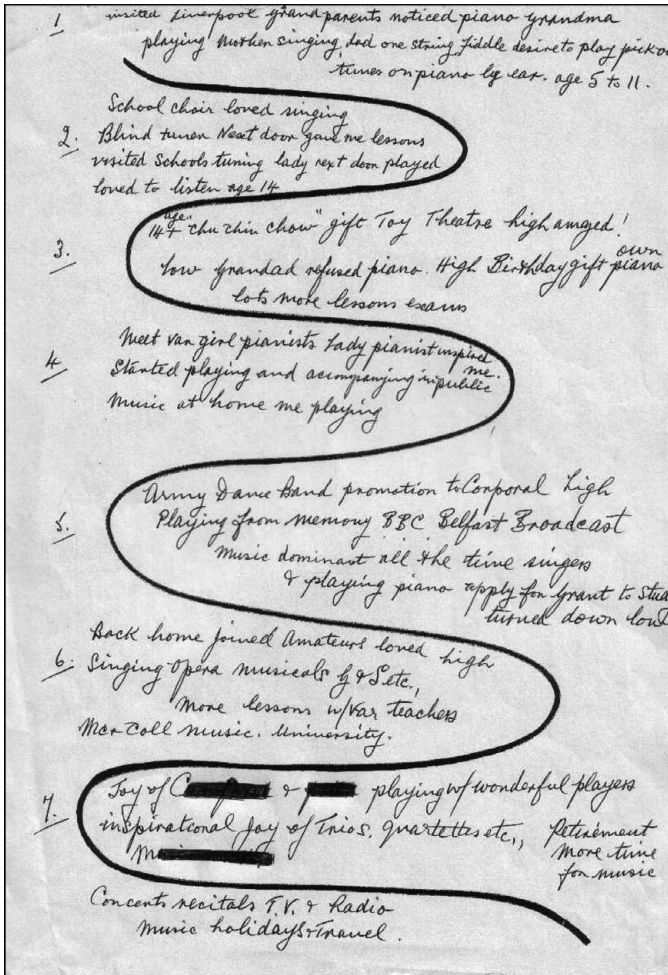 1 visited Liverpool grandparents noticed piano grandma
playing Mother singing, dad one string fiddle desire to play pick
tunes on piano by ear. age 5 to 11.
School choir loved singing
2. Blind tuner Next door gave me lessons
visited Schools tuning lady next door played
loved to listen age 14
age
14+ "chu chin chow" gift Toy Theatre high amazed!
3. low Grandad refused piano. High Birthday gift own piano
lots more lessons exams
Meet var girl pianists Lady pianist inspired me.
4. Started playing and accompanying in public
Music at home me playing
Army Dance Band promotion to Corporal high
5. Playing from memory BBC Belfast Broadcast
Music dominant all the time singers
& playing piano apply for Grant to
turned down low
Back home joined Amateurs loved high
6. Singing Opera musicals G & S etc.,
More lessons w/var teachers
Mcr Coll music. University.
7. Joy of & playing w/ wonderful players
inspirational joy of Trios. Quartettes etc.,
Retirement
more time
for music
Concerts recitals T.V. & Radio
Music holidays & Travel.